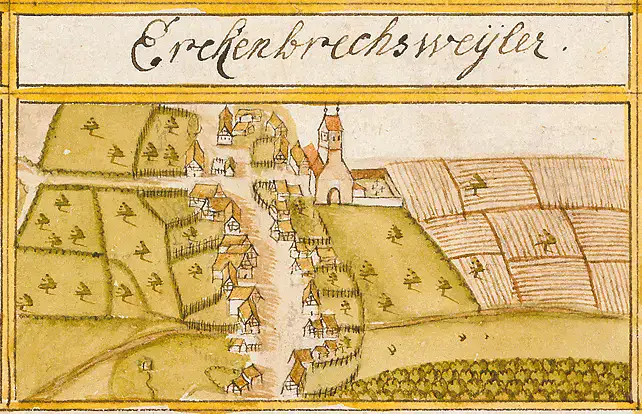 Erckenbrechsweÿler.